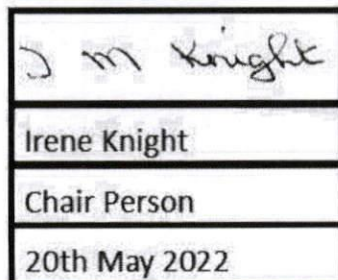 I M Knight
Irene Knight
Chair Person
20th May 2022